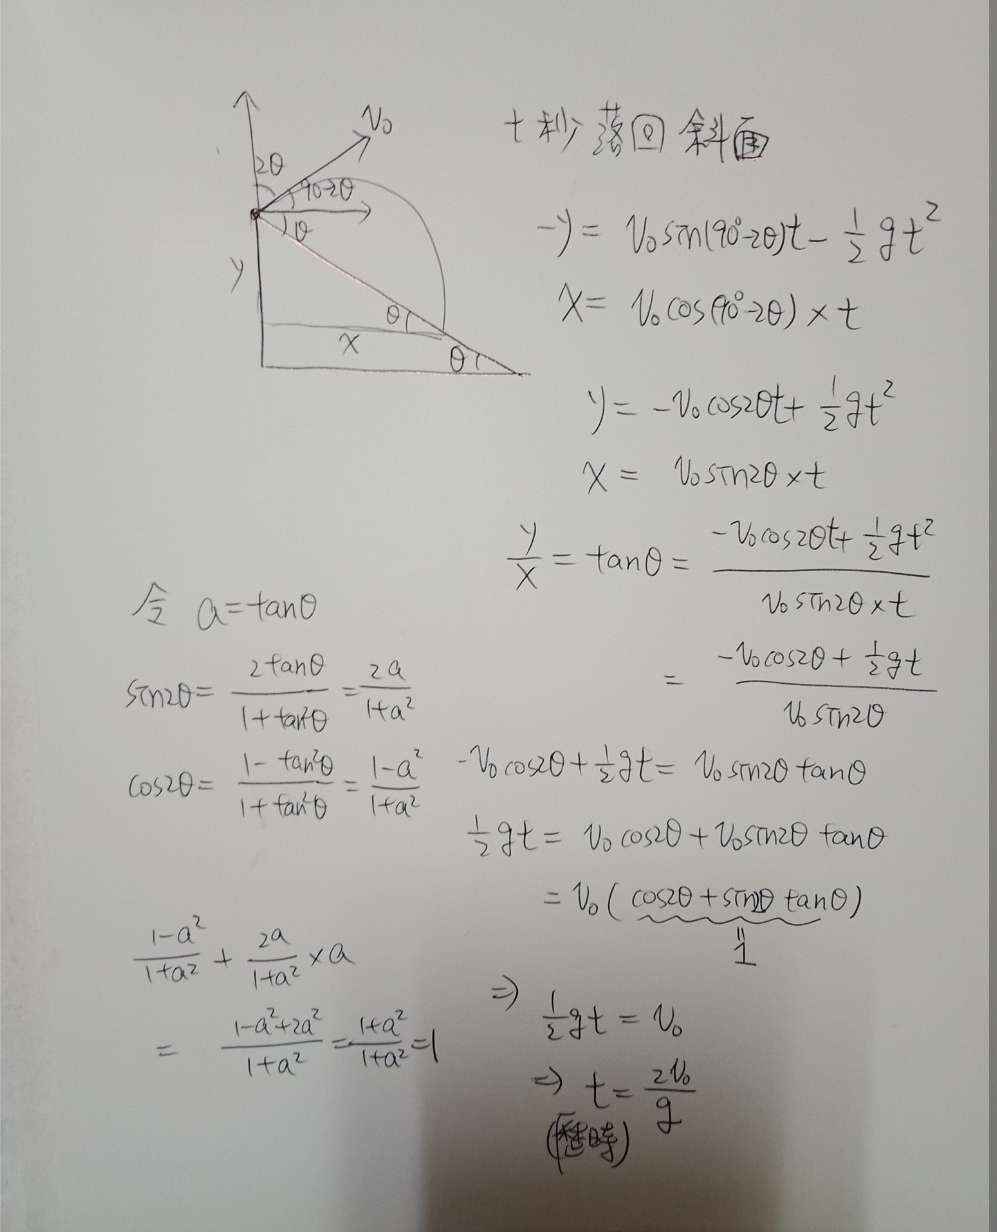 V₀
2θ
90-2θ
θ
y
θ
x
θ
t秒落回斜面
-y = V₀sin(90°-2θ)t - ½gt²
x = V₀cos(90°-2θ) × t
y = -V₀cos2θt + ½gt²
x = V₀sin2θ × t
y/x = tanθ = (-V₀cos2θt + ½gt²)/(V₀sin2θ × t)
= (-V₀cos2θ + ½gt)/(V₀sin2θ)
令 a = tanθ
sin2θ = 2tanθ/(1+tan²θ) = 2a/(1+a²)
cos2θ = (1-tan²θ)/(1+tan²θ) = (1-a²)/(1+a²)
-V₀cos2θ + ½gt = V₀sin2θ tanθ
½gt = V₀cos2θ + V₀sin2θ tanθ
= V₀(cos2θ + sin2θ tanθ)
"
1
(1-a²)/(1+a²) + 2a/(1+a²) × a
= (1-a²+2a²)/(1+a²) = (1+a²)/(1+a²) = 1
⇒ ½gt = V₀
⇒ t = 2V₀/g
(歷時)